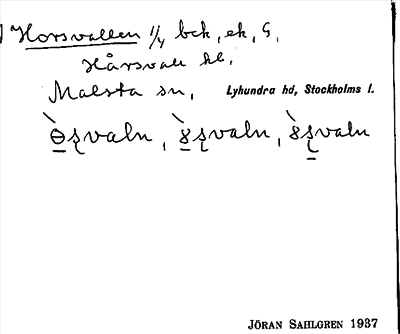 Horsvallen 1/4 bck, ek, G,
Hårsvall hl.
Malsta sn, Lyhundra hd, Stockholms l.
ɵ̀ʂvaln, ɣ̀ʂvaln, ɣ̀ʂvaln
JÖRAN SAHLGREN 1937